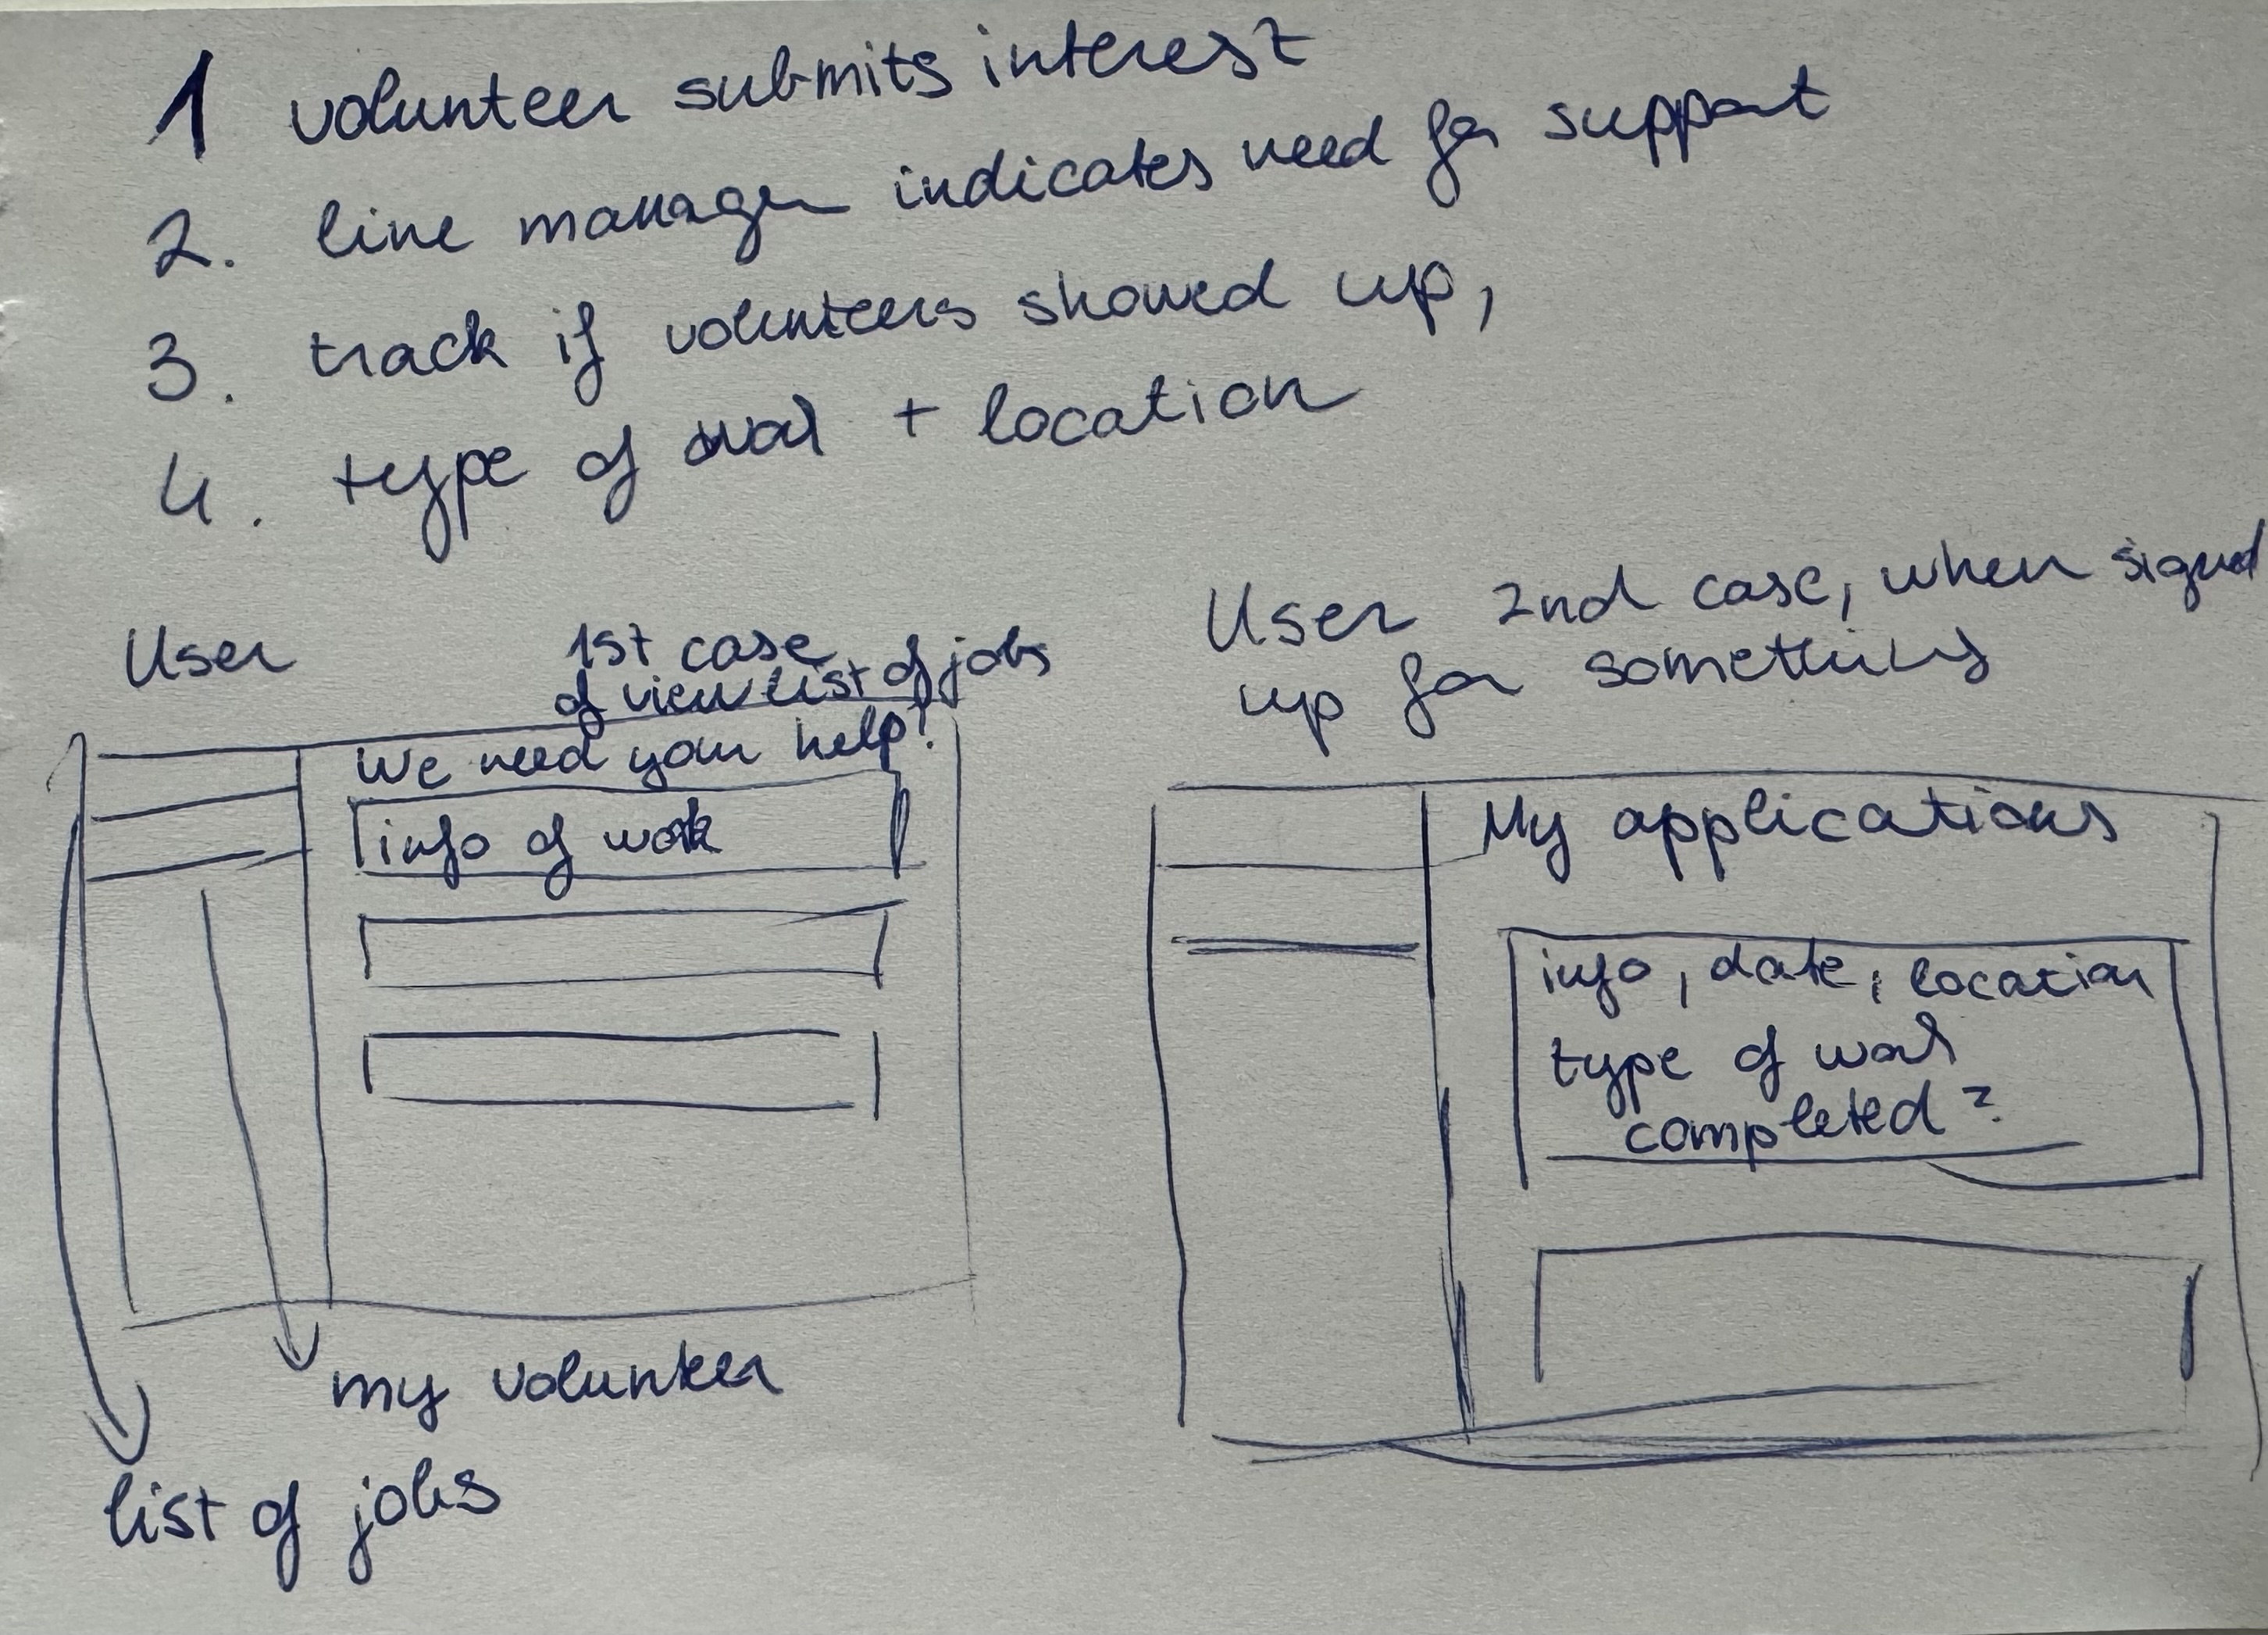 1 volunteer submits interest
2. line manager indicates need for support
3. track if volunteers showed up,
4. type of work + location
User
1st case
of view list of jobs
We need your help!
info of work
my volunteer
list of jobs
User 2nd case, when signed
up for something
My applications
info, date, location
type of work
completed?